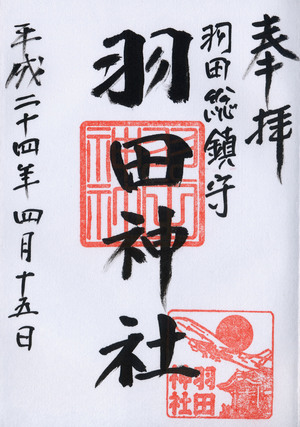 奉拝
羽田総鎮守
羽田神社
平成二十四年四月十五日
羽田
神社